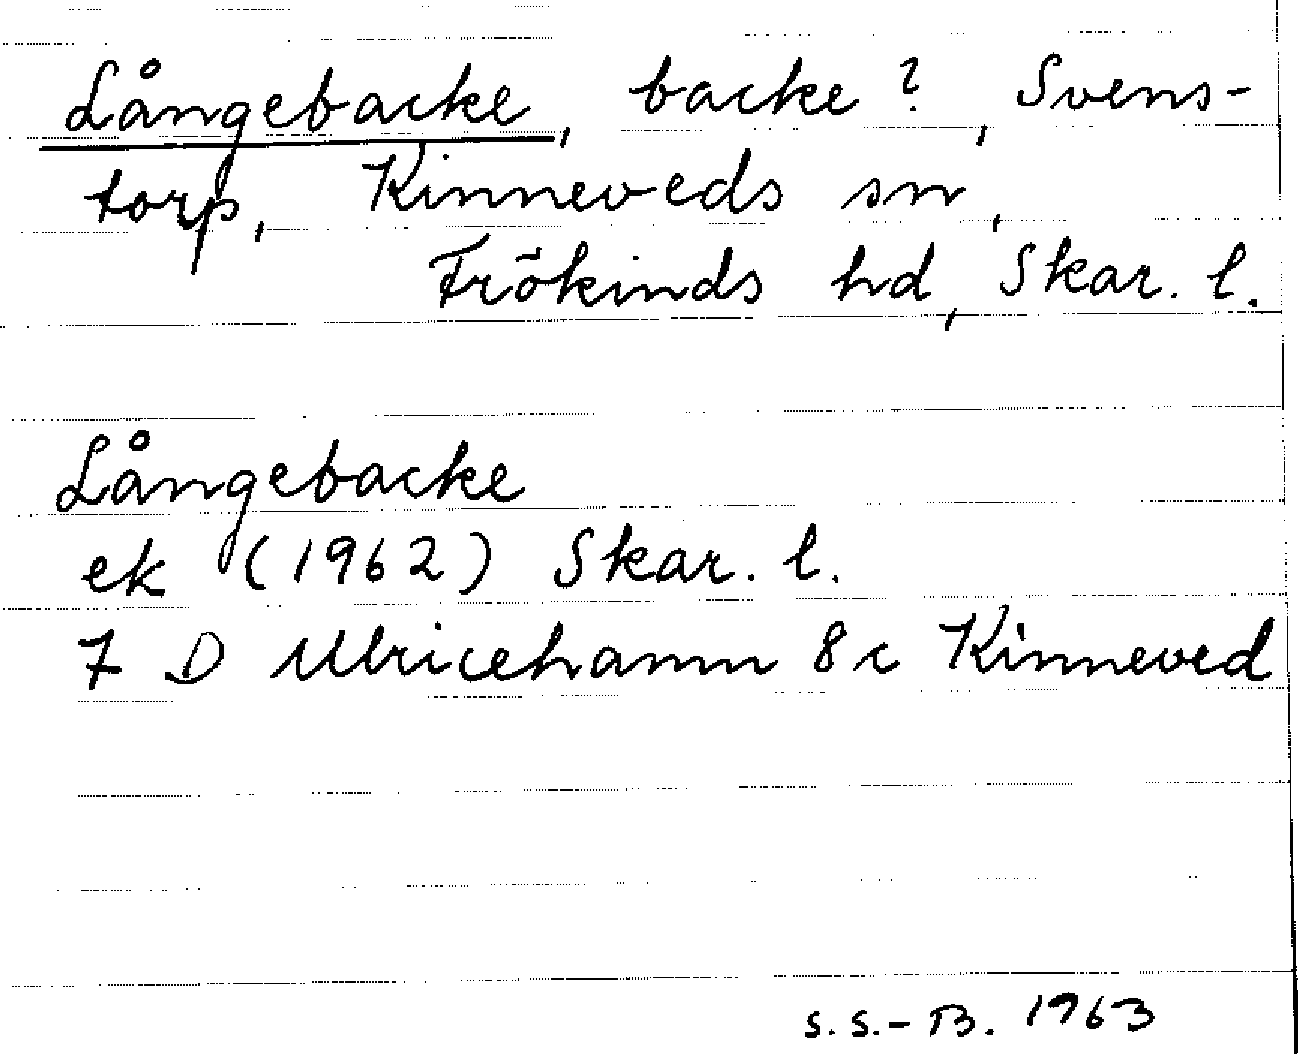 Långebacke, backe?, Svens-
torp, Kinneveds sn,
Frökinds hd, Skar. l.
Långebacke
ek (1962) Skar. l.
7 D Ulricehamn 8 c Kinneved
S. S.-B. 1963